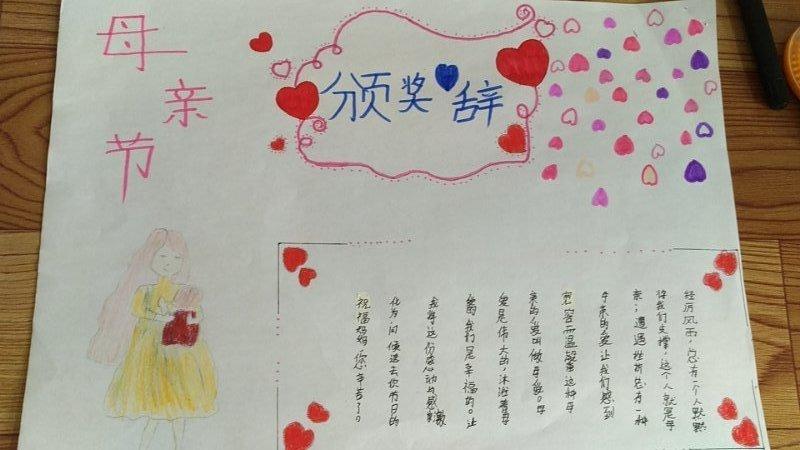 母亲节
颁奖辞
经历风雨,总有一个人默默
将我们支撑,这个人就是母
亲;遭遇挫折总有一种
来的爱让我们感到
宽容而温馨 这种母
亲的爱叫做母爱。母
爱是伟大的,沐浴着母
爱的我们是幸福的。让
我将这份感动与感激
化为问候送去
祝福妈妈您辛苦了。